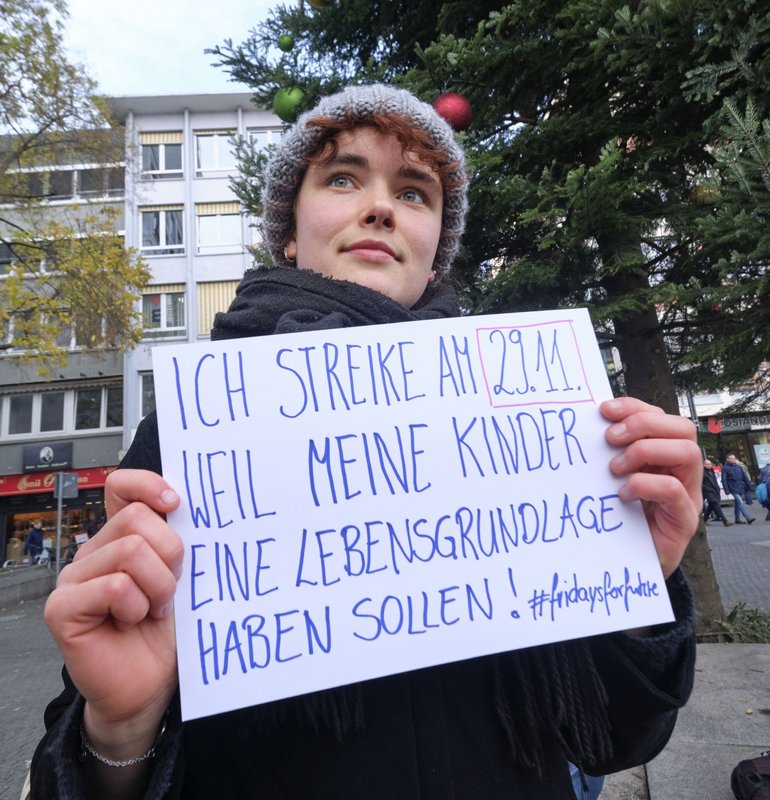 ICH STREIKE AM 29.11.
WEIL MEINE KINDER
EINE LEBENSGRUNDLAGE
HABEN SOLLEN! #fridaysforfuture
OSIANDER